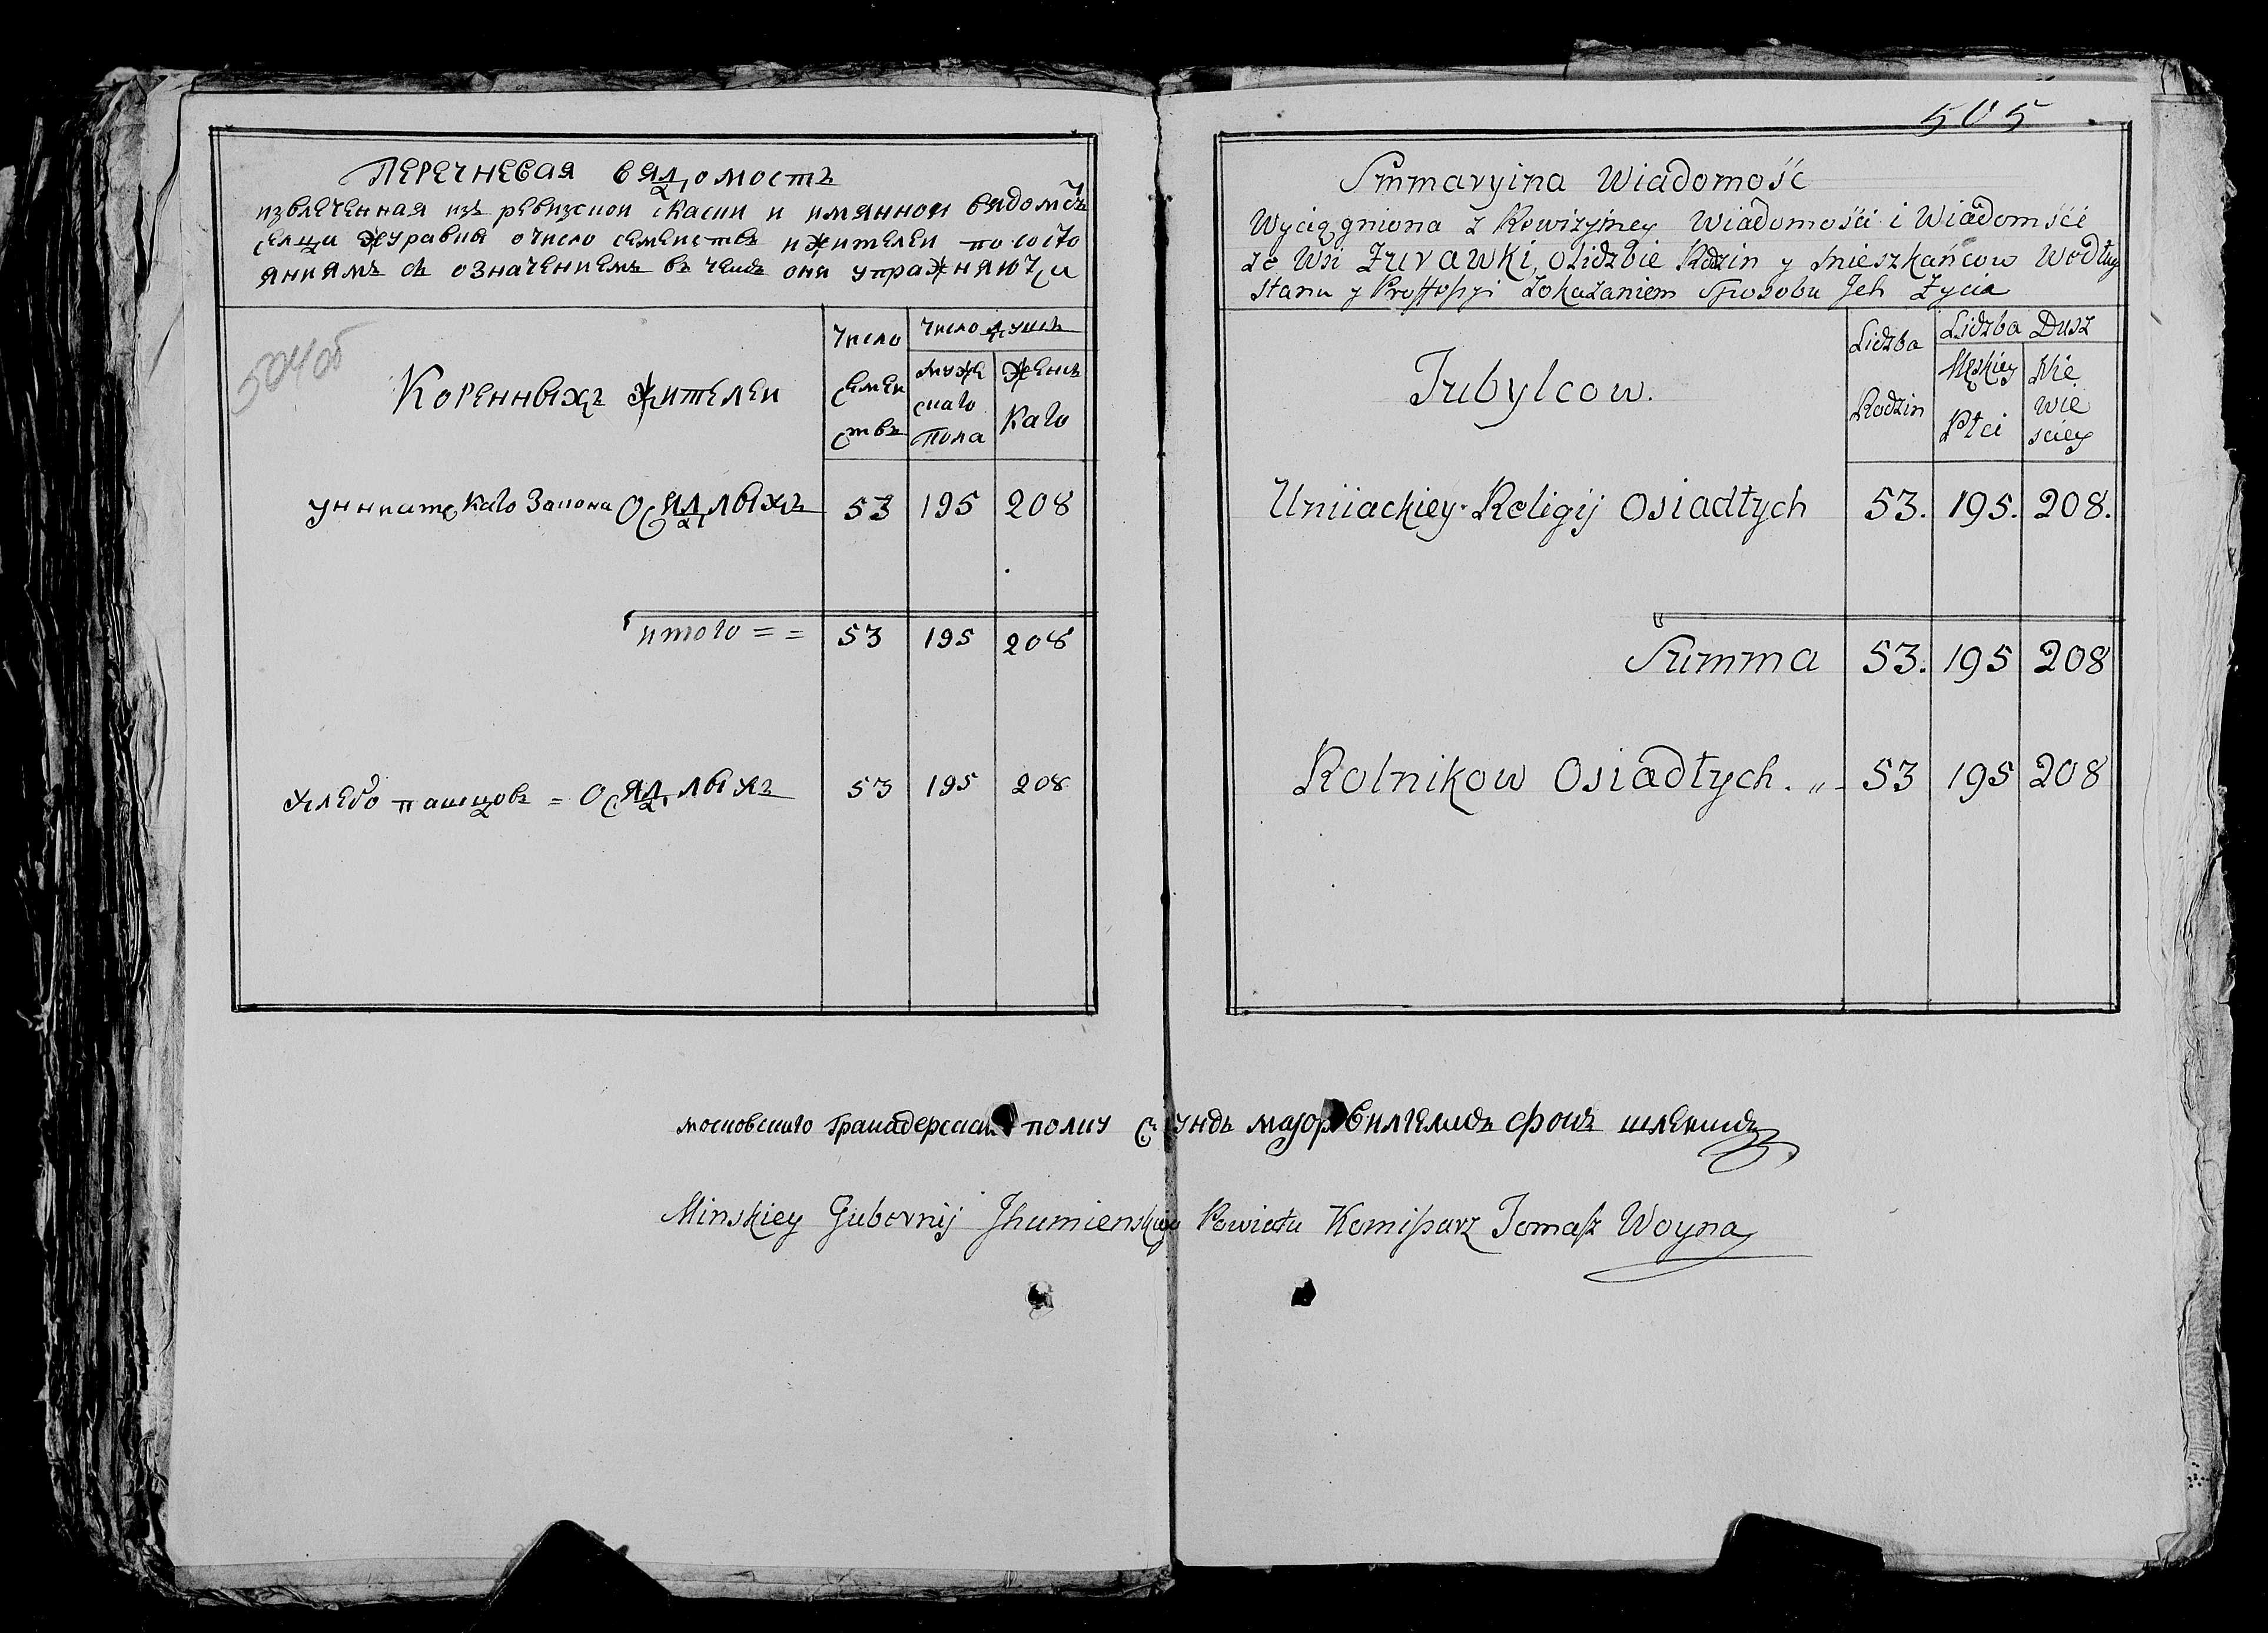 504 об
ПЕРЕЧНЕВАЯ вядомость
извлеченная изъ ревизской скаски и имянной вядомости
селца Журавка о число семействъ и жителей по состо
яниямъ съ означениемъ въ чемъ они упражняютса
Коренныхъ жителей
Число
семей
ствъ
число душъ
муже
скаго
пола
женс
каго
униятскаго Закона Осядлыхъ 53 195 208
итого = = 53 195 208
хлебо пашцовъ = Осядлыхъ 53 195 208
505
Summaryina Wiadomość
Wyciągniona z Rewizyiney Wiadomości i Wiadomści
ze Wsi Żurawki, o lidzbie Rodzin y Mieszkańcow Według
stanu y Proffessyi zokazaniem Sposobu Jch Życia
Tubylcow.
Lidzba
Rodzin
Lidzba Dusz
Męskiey
Płci
Nie
wie
sciey
Uniiackiey Religij Osiadłych 53. 195. 208.
Summa 53. 195 208
Rolnikow Osiadłych. „ 53 195 208
московскаго гранадерскаго полку секундъ маjоръ вилгелмъ фонъ
Minskiey Gubernij Jhumienskiego Powiatu Komissarz Tomasz Woyna